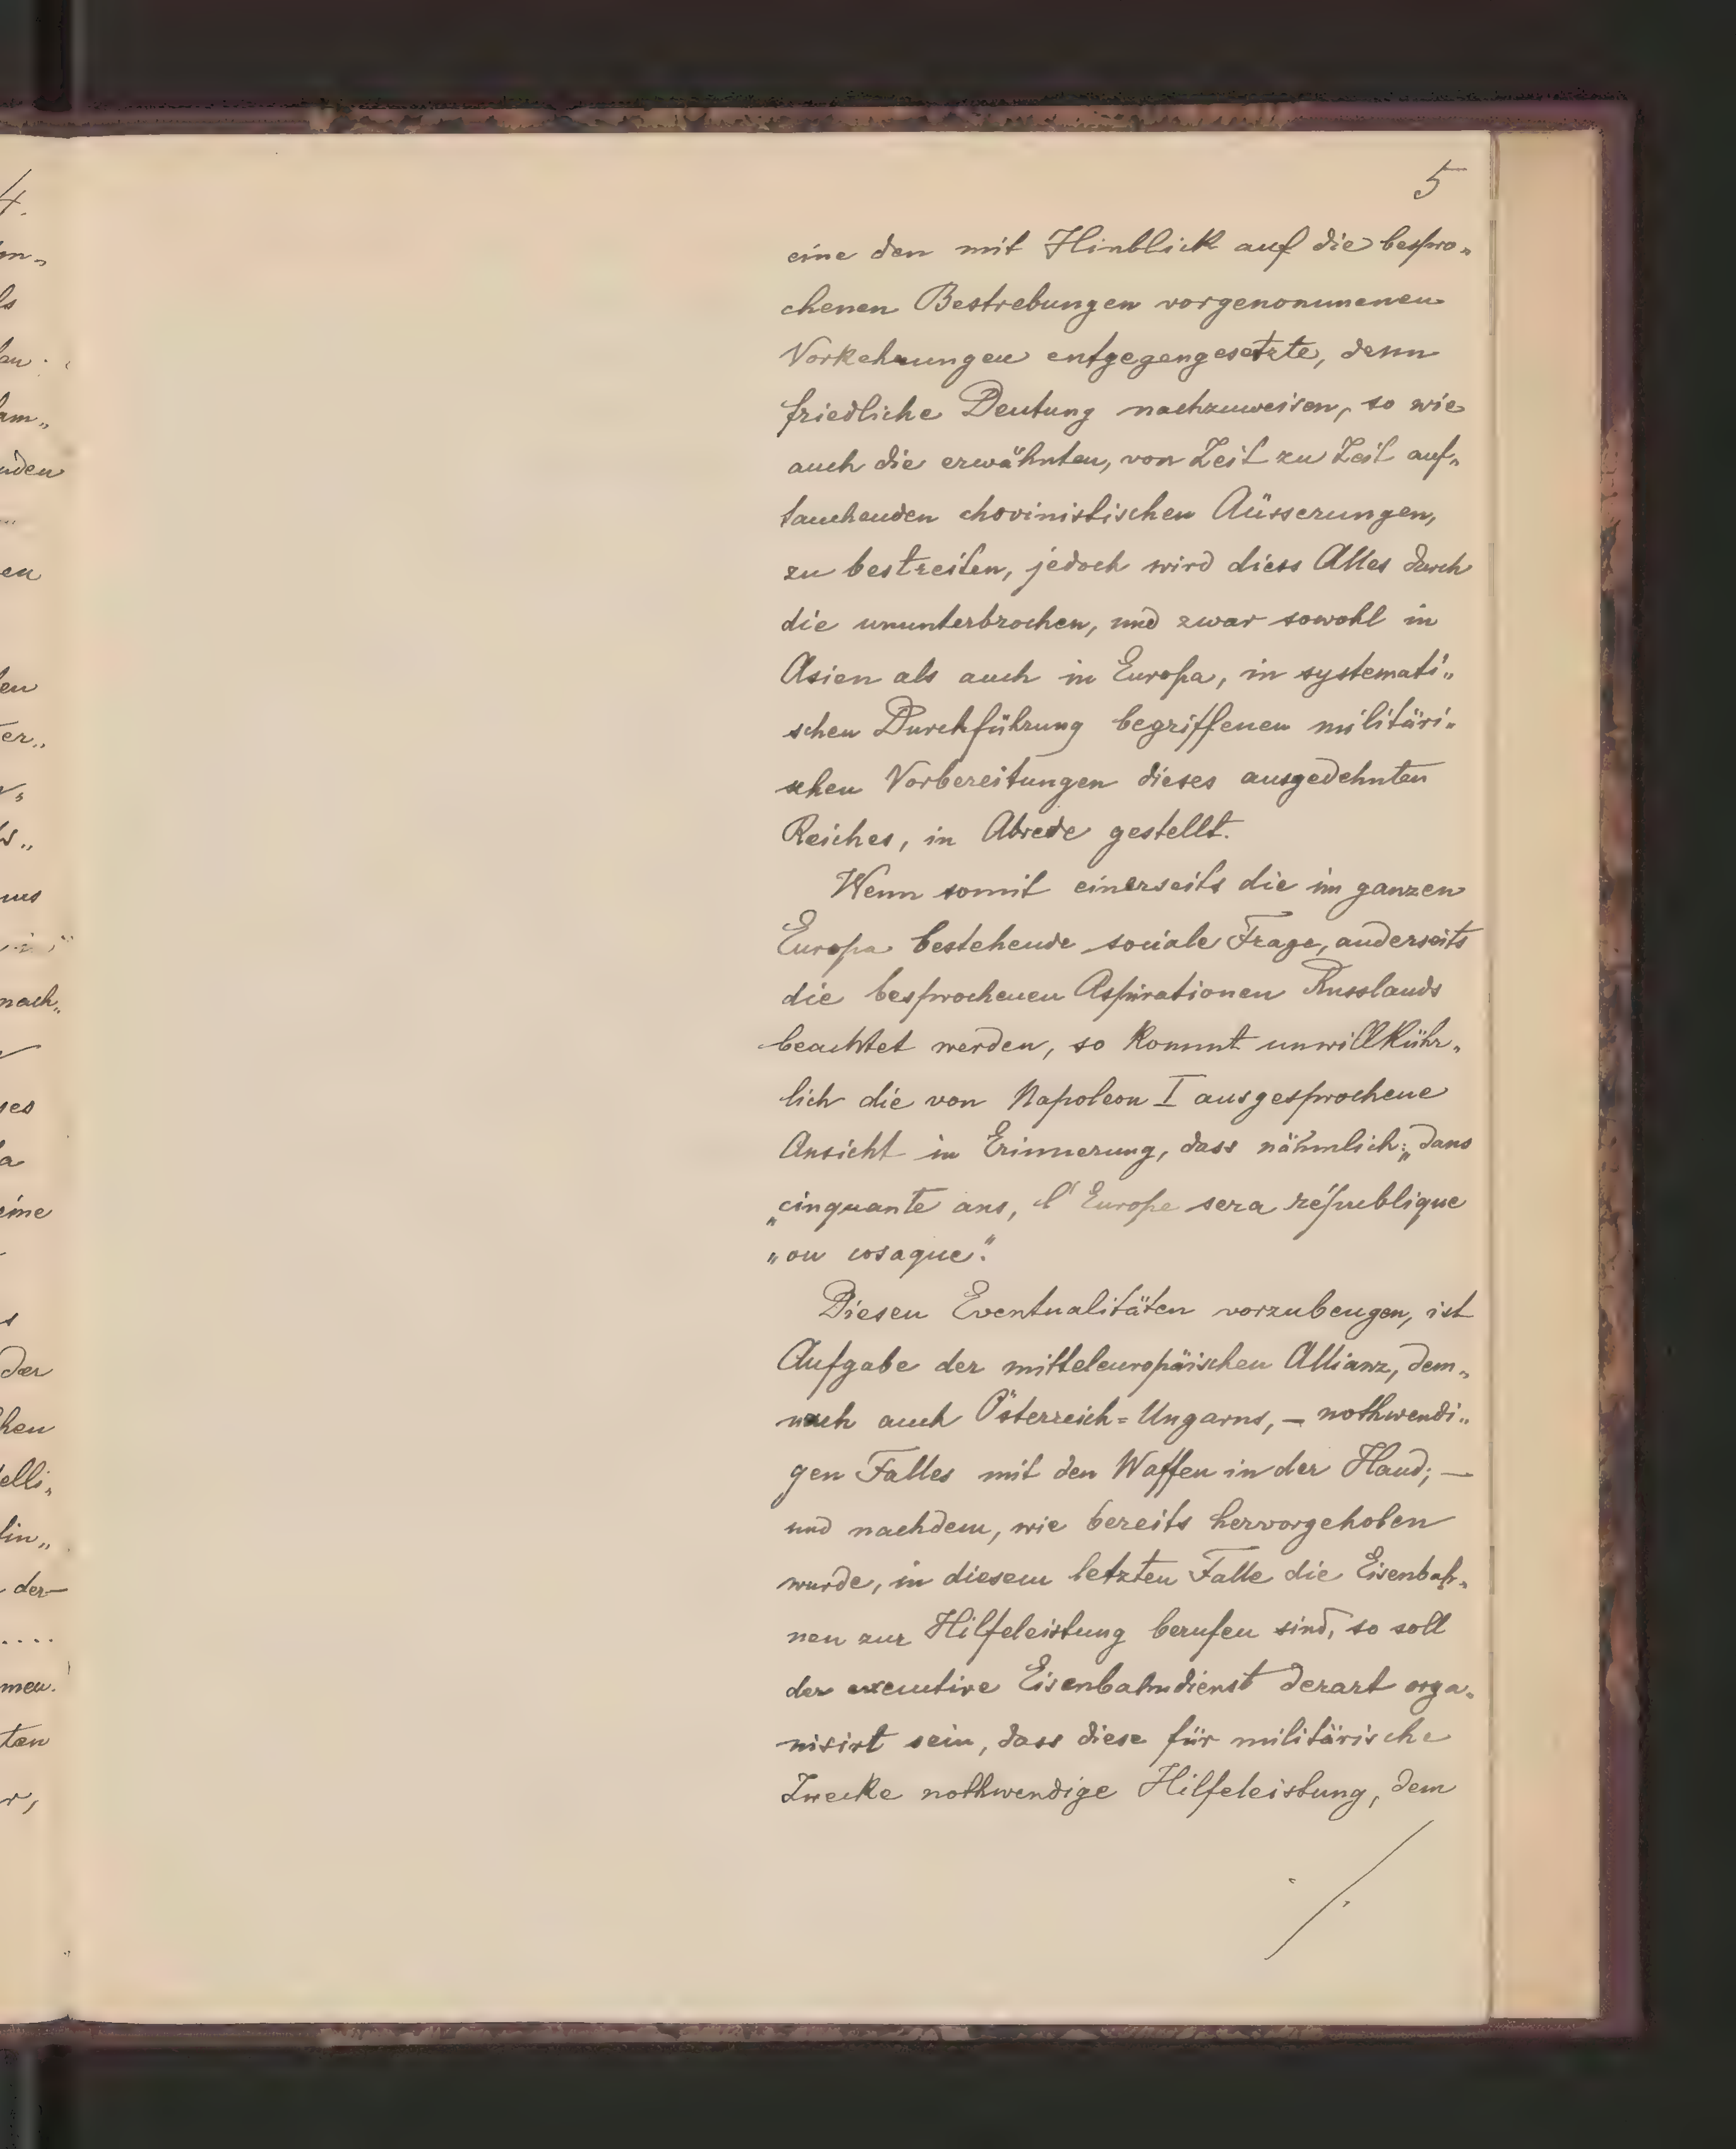 5
eine den mit Hinblick auf die bespro„
chenen Bestrebungen vorgenommenen
Vorkehrungen entgegengesetzte, denn
friedliche Deutung nachzuweisen, so wie
auch die erwähnten, von Zeit zu Zeit auf„
tauchenden chovinistischen Aüsserungen,
zu bestreiten, jedoch wird diess Alles durch
die ununterbrochen, und zwar sowohl in
Asien als auch in Europa, in systemati„
schen Durchführung begriffenen militäri„
schen Vorbereitungen dieses ausgedehnten
Reiches, in Abrede gestellt.
Wenn somit einerseits die im ganzen
Europa bestehende sociale Frage, anderseits
die besprochenen Aspirationen Russlands
beachtet werden, so kommt unwillkühr„
lich die von Napoleon I ausgesprochene
Ansicht in Erinnerung, dass nähmlich: „dans
„cinquante ans, l'Europe sera république
„ou cosaque".
Diesen Eventualitäten vorzubeugen, ist
Aufgabe der mitteleuropäischen Allianz, dem„
nach auch Österreich=Ungarns, — nothwendi„
gen Falles mit den Waffen in der Hand; —
und nachdem, wie bereits hervorgehoben
wurde, in diesem letzten Falle die Eisenbah„
nen zur Hilfeleistung berufen sind, so soll
der executive Eisenbahndienst derart orga„
nisirt sein, dass diese für militärische
Zwecke nothwendige Hilfeleistung, dem